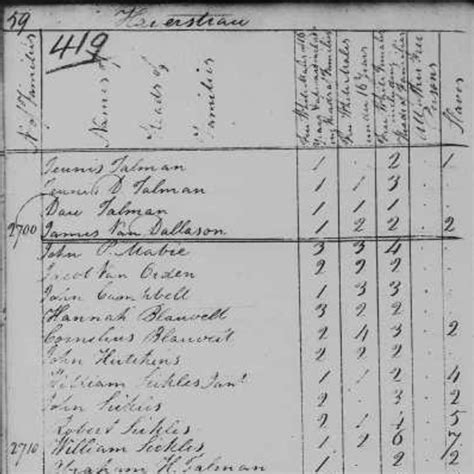 59 Haverstrau
419
No of Families
Names of Heads of Families
Free White Males of 16
Years
Free White Males
under 16 Years
Free White Females
including
Heads of Families
All other Free
Persons
Slaves
Teunis Talman 1 . 2 . 1
Teunis D Talman 1 1 3 . .
Dow Talman 1 1 1 . .
2700 James Van Dallason 1 2 2 . 2
John P. Mabie 3 3 4 . .
Jacob Van Orden 2 2 2 . .
John Campbell 1 3 3 . .
Hannah Blauvelt 3 2 2 . .
Cornelius Blauvelt 2 4 3 . 2
John Hutchins 2 2 2 . .
William Sickles Junr 1 1 2 . 4
John Sickles 2 . 3 . 2
Robert Sickles 2 1 1 . 5
2710 William Sickles 1 2 6 . 7
Abraham H. Talman